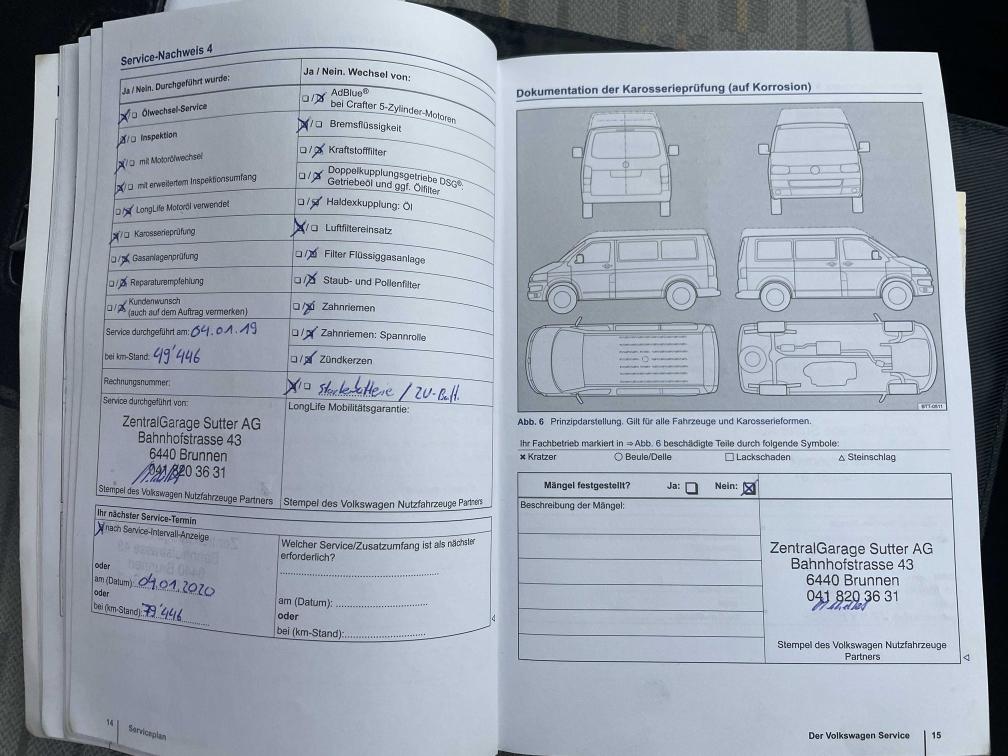 Service-Nachweis 4
Ja / Nein. Durchgeführt wurde:
Ölwechsel-Service
Inspektion
mit Motorölwechsel
mit erweitertem Inspektionsumfang
LongLife Motoröl verwendet
Karosserieprüfung
Gasanlagenprüfung
Reparaturempfehlung
Kundenwunsch
(auch auf dem Auftrag vermerken)
Service durchgeführt am: 04.01.19
bei km-Stand: 49'446
Rechnungsnummer:
Service durchgeführt von:
ZentralGarage Sutter AG
Bahnhofstrasse 43
6440 Brunnen
041 820 36 31
Stempel des Volkswagen Nutzfahrzeuge Partners
Ja / Nein. Wechsel von:
AdBlue®
bei Crafter 5-Zylinder-Motoren
Bremsflüssigkeit
Kraftstofffilter
Doppelkupplungsgetriebe DSG®:
Getriebeöl und ggf. Ölfilter
Haldexkupplung: Öl
Luftfiltereinsatz
Filter Flüssiggasanlage
Staub- und Pollenfilter
Zahnriemen
Zahnriemen: Spannrolle
Zündkerzen
/ ZU-Batt.
LongLife Mobilitätsgarantie:
Stempel des Volkswagen Nutzfahrzeuge Partners
Ihr nächster Service-Termin
nach Service-Intervall-Anzeige
oder
am (Datum): 04.01.2020
oder
bei (km-Stand): 79'446
Welcher Service/Zusatzumfang ist als nächster
erforderlich?
am (Datum):
oder
bei (km-Stand):
14 Serviceplan
Dokumentation der Karosserieprüfung (auf Korrosion)
BTT-0511
Abb. 6 Prinzipdarstellung. Gilt für alle Fahrzeuge und Karosserieformen.
Ihr Fachbetrieb markiert in ⇒ Abb. 6 beschädigte Teile durch folgende Symbole:
× Kratzer ○ Beule/Delle □ Lackschaden △ Steinschlag
Mängel festgestellt? Ja: Nein:
Beschreibung der Mängel:
ZentralGarage Sutter AG
Bahnhofstrasse 43
6440 Brunnen
041 820 36 31
Stempel des Volkswagen Nutzfahrzeuge
Partners
Der Volkswagen Service 15